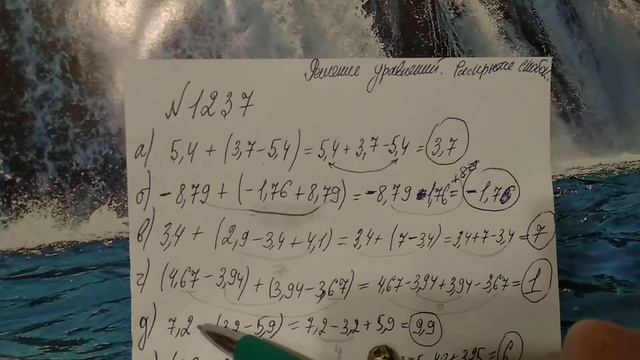 Решение уравнений. Раскрытие скобок.
№1237
а) 5,4 + (3,7 - 5,4) = 5,4 + 3,7 - 5,4 = 3,7
б) -8,79 + (-1,76 + 8,79) = -8,79 - 1,76 + 8,79 = -1,76
в) 3,4 + (2,9 - 3,4 + 4,1) = 3,4 + (7 - 3,4) = 3,4 + 7 - 3,4 = 7
г) (4,67 - 3,94) + (3,94 - 3,67) = 4,67 - 3,94 + 3,94 - 3,67 = 1
д) 7,2 (3,2 - 5,9) = 7,2 - 3,2 + 5,9 = 9,9